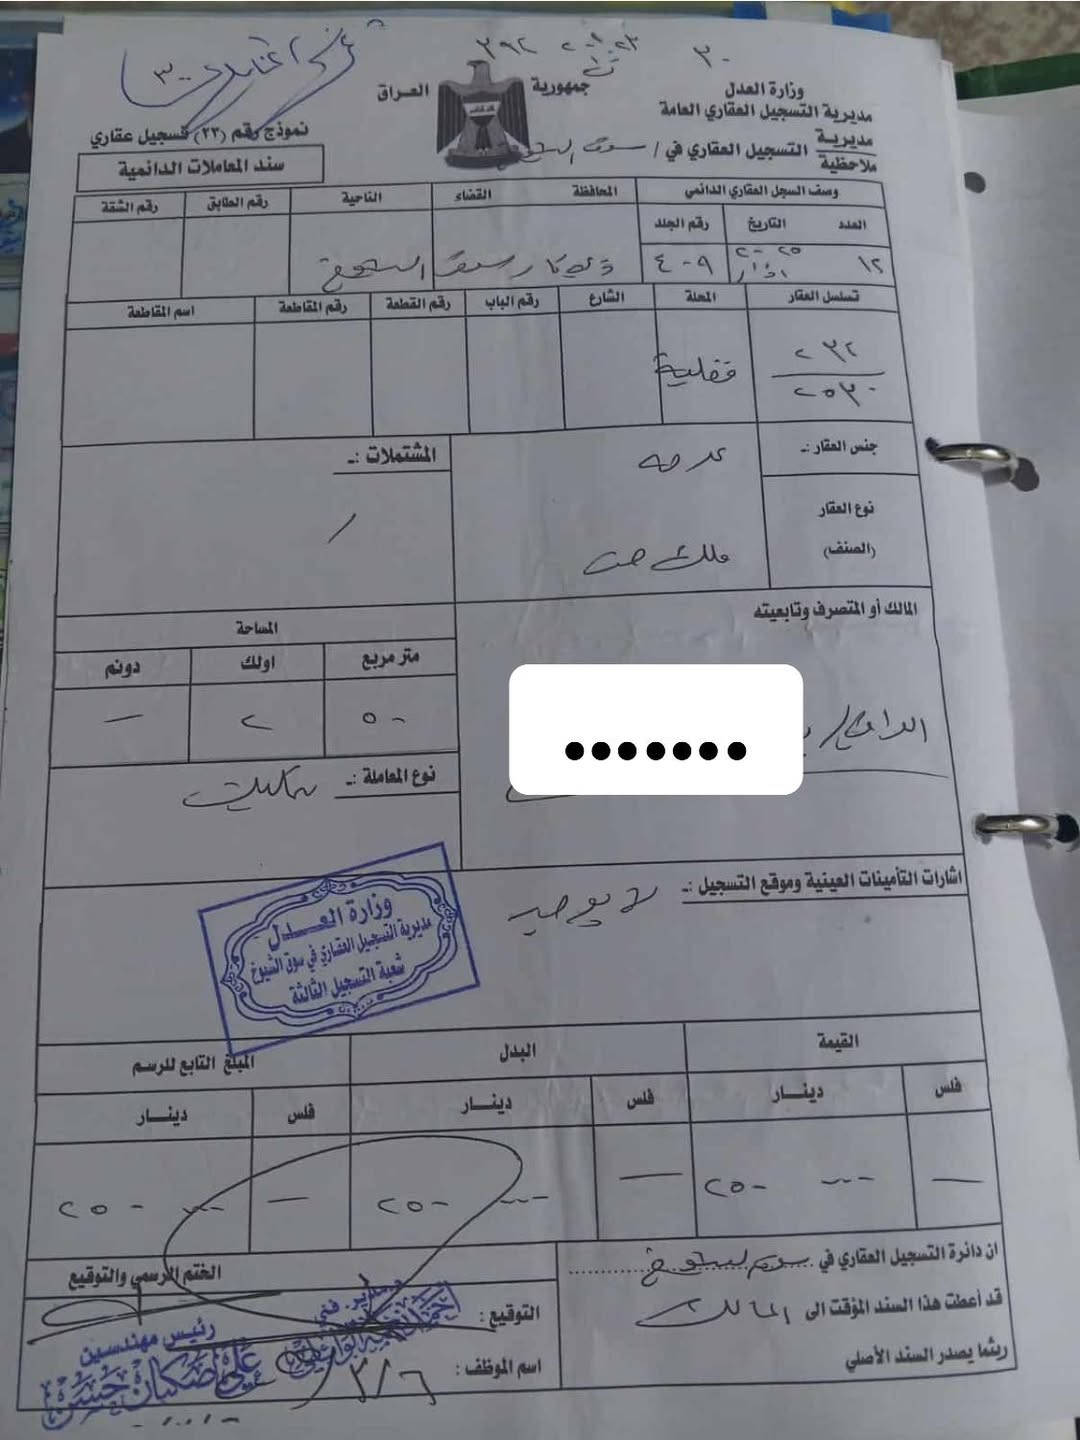 جمهورية العراق
وزارة العدل
مديرية التسجيل العقاري العامة
مديرية
ملاحظية
التسجيل العقاري في / سوق الشيوخ
نموذج رقم (٢٣) تسجيل عقاري
سند المعاملات الدائمية
وصف السجل العقاري الدائمي
المحافظة
القضاء
الناحية
رقم الطابق
رقم الشقة
العدد
التاريخ
رقم الجلد
١٢
٢٠٢٥ اذار
٤٠٩
ذي قار سوق الشيوخ
تسلسل العقار
المحلة
الشارع
رقم الباب
رقم القطعة
رقم المقاطعة
اسم المقاطعة
٢٣٢
٢٥٣٠
جنس العقار :ـ
عرصه
المشتملات :ـ
/
نوع العقار
(الصنف)
ملك صرف
المالك أو المتصرف وتابعيته
المساحة
متر مربع
اولك
دونم
٥٠
٢
—
•••••••
نوع المعاملة :ـ
اشارات التأمينات العينية وموقع التسجيل :ـ لا يوجد
وزارة العدل
مديرية التسجيل العقاري في سوق الشيوخ
شعبة التسجيل الثالثة
القيمة
البدل
المبلغ التابع للرسم
فلس
دينـــار
فلس
دينـــار
فلس
دينـــار
—
٢٥٠٠٠٠٠
—
٢٥٠٠٠٠٠
—
٢٥٠٠٠٠٠
ان دائرة التسجيل العقاري في سوق الشيوخ
قد أعطت هذا السند المؤقت الى المالك
ريثما يصدر السند الأصلي
الختم الرسمي والتوقيع
التوقيع :
اسم الموظف :
٣/٦
مدير فني
رئيس مهندسين
علي صكبان حسن